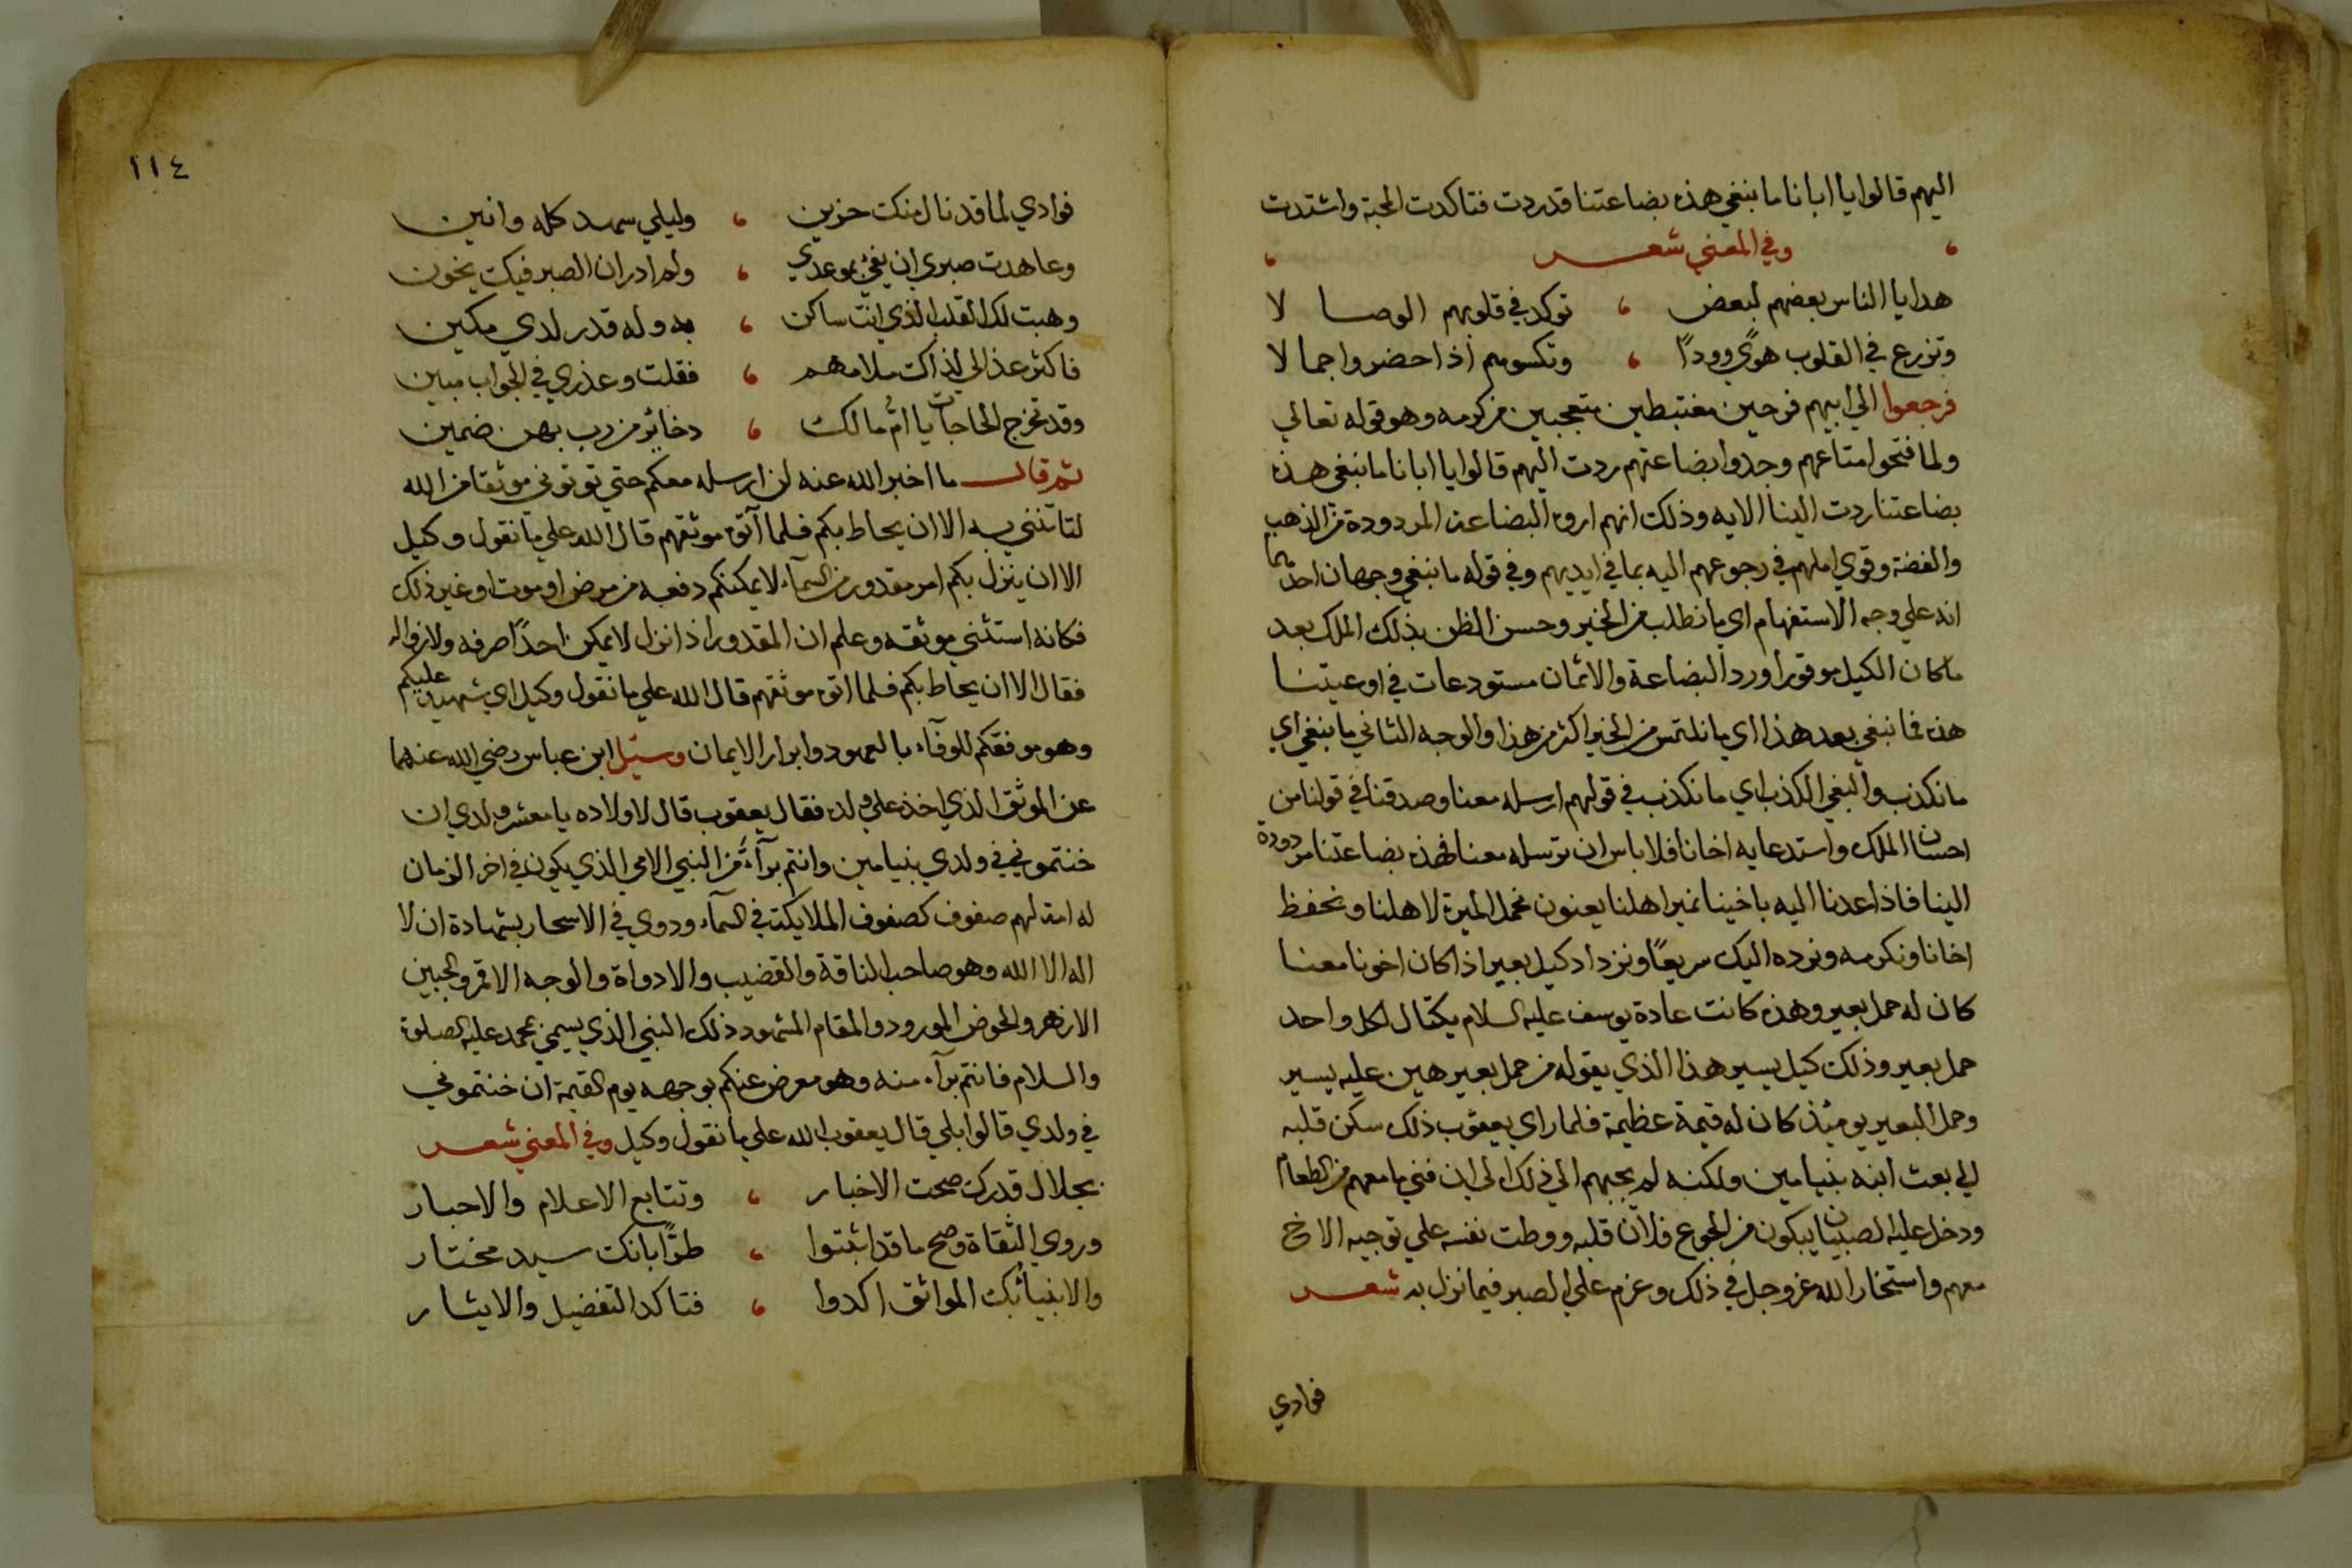 اليهم قالوا يا ابانا ما نبغي هذه بضاعتنا قد ردت فتاكدت المحبة واشتدت
وفي المعني شعر
هدايا الناس بعضهم لبعض ، توكد في قلوبهم الوصالا
وتزرع في القلوب هوًي وودًا ، وتكسوهم اذا حضروا جمالا
فرجعوا الي ابيهم فرحين مغتبطين متعجبين من كرمه وهو قوله تعالي
ولما فتحوا متاعهم وجدوا بضاعتهم ردت اليهم قالوا يا ابانا ما نبغي هذه
بضاعتنا ردت الينا الايه وذلك انهم اروه البضاعة المردودة من الذهب
والفضة وقوي املهم في رجوعهم اليه بما في ايديهم وفي قوله ما نبغي وجهان احدهما
انه علي وجه الاستفهام اي ما نطلب من الخير وحسن الظن بذلك الملك بعد
ما كان الكيل موقورا ورد البضاعة والاثمان مستودعات في اوعيتنا
هذه فما نبغي بعد هذا اي ما نلتمس من الخير اكثر من هذا والوجه الثاني ما نبغي اي
ما نكذب والبغي الكذب اي ما نكذب في قولهم ارسله معنا وصدقنا في قولنا من
احسان الملك واستدعايه اخانا فلا باس ان ترسله معنا فهذه بضاعتنا مردودة
الينا فاذا عدنا اليه باخينا نمير اهلنا يعنون نحمل الميرة لاهلنا ونحفظ
اخانا ونكرمه ونرده اليك سريعًا ونزداد كيل بعير اذا كان اخونا معنا
كان له حمل بعير وهذه كانت عادة يوسف عليه السلام يكتال لكل واحد
حمل بعير وذلك كيل يسير هذا الذي يقوله من حمل بعير هين عليه يسير
وحمل البعير يوميئذ كان له قيمة عظيمة فلما راي يعقوب ذلك سكن قلبه
الي بعث ابنه بنيامين ولكنه لم يجبهم الي ذلك الي ان فني ما معهم من الطعام
ودخل عليه الصبيان يبكون من الجوع فلان قلبه ووطت نفسه علي توجيه الاخ
معهم واستخار الله عز وجل في ذلك وعزم علي الصبر فيما نزل به شعر
فوادي
١١٤
فوادي لما قد نال منك حزين ، وليلي سهد كله وانين
وعاهدت صبري ان يفي بموعدي ، ولم ادر ان الصبر فيك يخون
وهبت لك القلب الذي انت ساكن ، به وله قدر لدي مكين
فاكثر عذالي لذاك ملامهم ، فقلت وعذري في الجواب مبين
وقد تخرج الحاجات يا ام مالك ، دخاير من رب بهن ضمين
ثم قال ما اخبر الله عنه لن ارسله معكم حتي توتوني موثقا من الله
لتاتنني به الا ان يحاط بكم فلما آتوه موثقهم قال الله علي ما نقول وكيل
الا ان ينزل بكم امر مقدور من السمآء لا يمكنكم دفعه من مرض او موت او غير ذلك
فكانه استثني موثقه وعلم ان المقدور اذا نزل لا يمكن احدًا صرفه ولا زواله
فقال الا ان يحاط بكم فلما اتوه موثقهم قال الله علي ما نقول وكيل اي شهيد عليكم
وهو موفقكم للوفآء بالعهود وابرار الايمان وسئل ابن عباس رضي الله عنهما
عن الموثق الذي اخذ علي ولده فقال يعقوب قال لاولاده يا معشر ولدي ان
خنتموني في ولدي بنيامين وانتم برآء من النبي الامي الذي يكون في اخر الزمان
له امة لهم صفوف كصفوف الملايكة في السمآء ودوي في الاسحار بشهادة ان لا
اله الا الله وهو صاحب الناقة والقضيب والادواة والوجه الاقمر والجبين
الازهر والحوض المورود والمقام المشهود ذلك النبي الذي يسمي محمد عليه الصلوة
والسلام فانتم برآء منه وهو معرض عنكم بوجهه يوم القيمة ان خنتموني
في ولدي قالوا بلي قال يعقوب الله علي ما نقول وكيل وفي المعني شعر
بجلال قدرك صحت الاخبار ، وتتابع الاعلام والاحبار
وروي الثقاة وصح ما قد اثبتوا ، طرًا بانك سيد مختار
والانبيا بك المواثق اكدوا ، فتاكد التفضيل والايثار